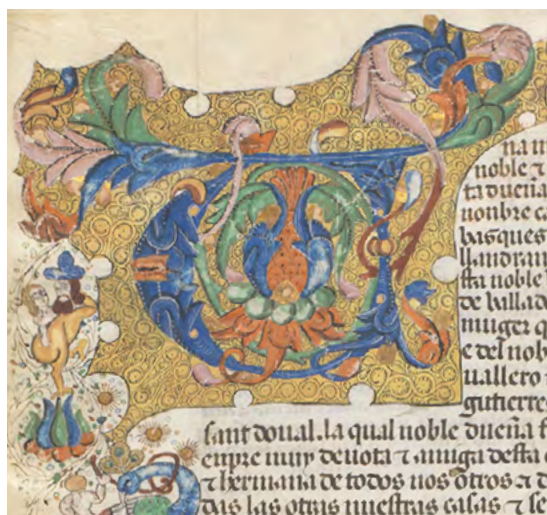 na m
noble ⁊
ta dueña
nonbre ca
basques
llandran
sta noble
de vallad
muger q
e del nob
uallero
gutierre
sant doual. la qual noble dueña f
enpre muy deuota ⁊ amiga desta
⁊ hermana de todos nos otros ⁊ d
das las otras nuestras casas ⁊ se